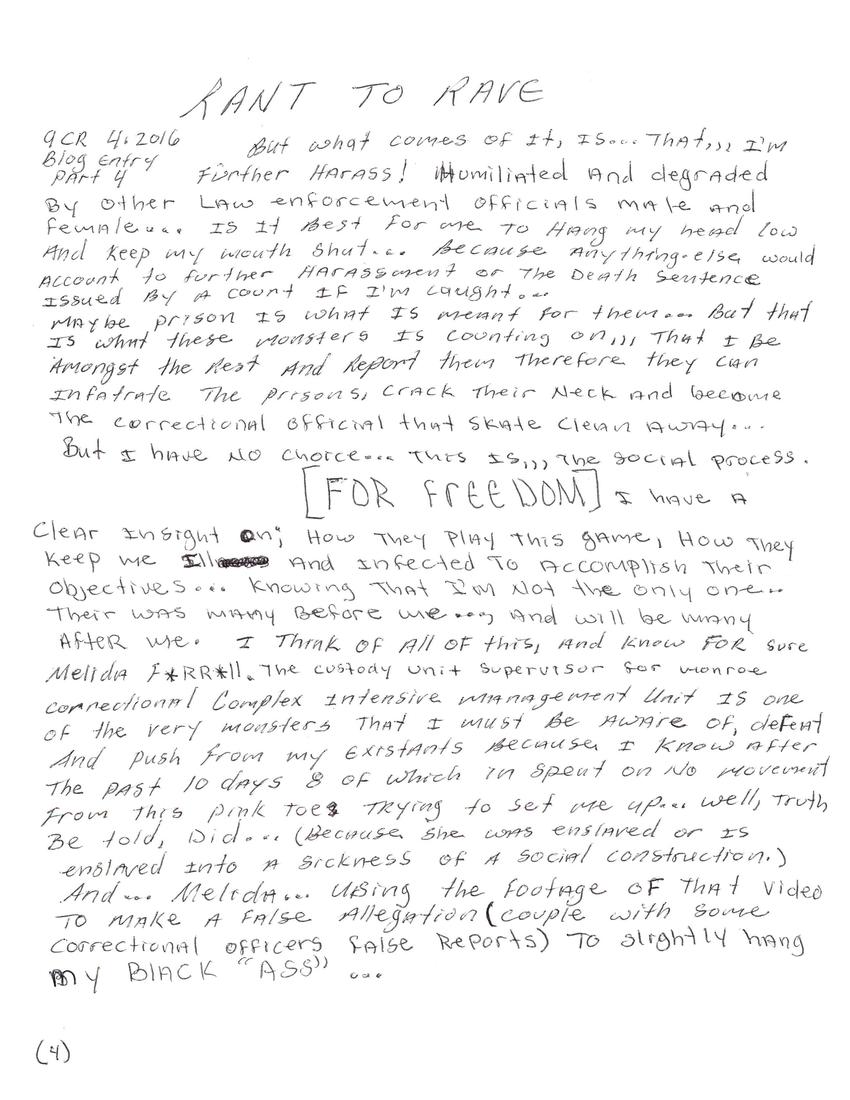 RANT TO RAVE
9CR 4.2016
Blog Entry
Part 4
But what comes of It, IS... THAT,,, I'm
Further HArASS! Humiliated And degraded
By Other LAW enforcement officials mAle And
female.... IS It Best For me To HAng my head low
And Keep my mouth Shut.... BecAuse Anything-else would
Account to further HArASSment or The DeAth Sentence
Issued By A count IF I'm caught...
mAybe prison IS what IS meAnt for them.... But that
Is whAt these monsters IS counting on,,, That I Be
Amongst the Rest And Report them Therefore they cAn
InfAtrate The prisons, CrAck Their Neck And become
The correctionAl OfficiAl that SkAte CleAn AwAy....
But I hAve No choice.... This IS,,, The SociAl process.
[FOR FREEDOM] I have A
CleAr InSight On; How They PlAy This gAme, How They
Keep me Ill And Infected To Accomplish Their
Objectives.... Knowing That I'm Not the only one...
Their wAs mAny Before me...., And will be mAny
After me. I Think of All of this, And Know FOR sure
MelidA F*RR*ll. The custody unit supervisor for monroe
correctionAl Complex Intensive MAnAgement Unit IS one
of the very monsters ThAt I must Be AwAre of, defeAt
And push from my Existants BecAuse I Know After
The pAst 10 dAys 8 of which in Spent on No movement
From this pink toes Trying to set me up.... well, Truth
Be told, Did.... (BecAuse She wAs enslaved or IS
enslAved Into A Sickness of A SociAl construction.)
And.... MelidA.... Using the footAge OF ThAt Video
To MAke A FAlse AllegAtion (couple with Some
CorrectionAl officers FAlse Reports) To slightly hAng
my BlAck "ASS" ...
(4)